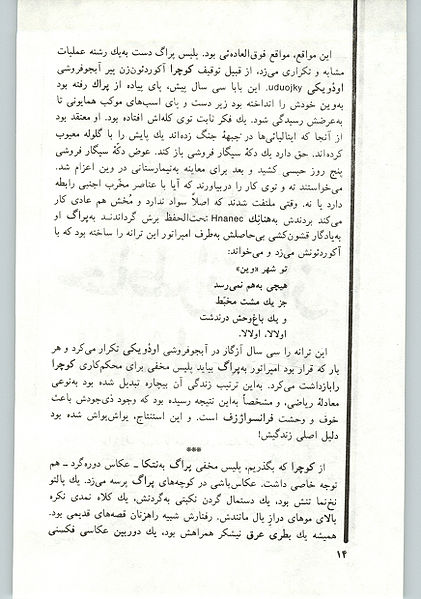 این مواقع، مواقع فوق‌العاده‌ئی بود. پلیس پراگ دست به‌یك رشته عملیات
مشابه و تکراری می‌زد، از قبیل توقیف کوچرا آکوردئون‌زن پیر آبجوفروشی
اودُویکی uduojky. این بابا سی سال پیش، پای پیاده از پراك رفته بود
به‌وین خودش را انداخته بود زیر دست و پای اسب‌های موکب همایونی تا
به‌عرضش رسیدگی شود. یك فکر نابت توی کله‌اش افتاده بود. او معتقد بود
از آنجا که ایتالیائی‌ها در جبههٔ جنگ زده‌اند یك پایش را با گلوله معیوب
کرده‌اند. حق دارد یك دکهٔ سیگار فروشی باز کند. عوض دکّهٔ سیگار فروشی
پنج روز حبسی کشید و بعد برای معاینه به‌تیمارستانی در وین اعزام شد.
می‌خواستند ته و توی کار را دربیاورند که آیا با عناصر مخّرب اجنبی رابطه
دارد یا نه. وقتی ملتفت شدند که اصلاً سواد ندارد و مُخش هم عادی کار
می‌کند بردندش به‌هنانِك Hnanec تحت‌الحفظ برش گرداندند به‌پراگ او
به‌یادگار قشون‌کشی بی‌حاصلش به‌طرف امپراتور این ترانه را ساخته بود که با
آکوردئونش می‌زد و می‌خواند:
تو شهر «وین»
هیچی به‌هم نمی‌رسد
جز یك مشت مخبّط
و یك باغ‌وحش درندشت
اولالا، اولالا.
این ترانه را سی سال آزگار در آبجوفروشی اودُویکی تکرار می‌کرد و هر
بار که قرار بود امپراتور به‌پراگ بیاید پلیس مخفی برای محکم‌کاری کوچرا
رابازداشت می‌کرد. به‌این ترتیب زندگی آن بیچاره تبدیل شده بود به‌نوعی
معادلهٔ ریاضی، و مشخصاً به‌این نتیجه رسیده بود که وجود ذی‌جودش باعث
خوف و وحشت فرانسواژزف است. و این استنتاج، یواش‌یواش شده بود
دلیل اصلی زندگیش!
***
از کوچرا که بگذریم، پلیس مخفی پراگ به‌نتکا ـ عکاس دوره‌گرد ـ هم
توجه خاصی داشت. عکاس‌باشی در کوچه‌های پراگ پرسه می‌زد. یك پالتو
نخ‌نما تنش بود، یك دستمال گردن نکبتی به‌گردنش، یك کلاه نمدی نکره
بالای موهای درازِ یال مانندش. رفتارش شبیه راهزنان قصه‌های قدیمی بود.
همیشه یك بطری عرق نیشکر همراهش بود، یك دوربین عکاسی فکسنی
۱۴